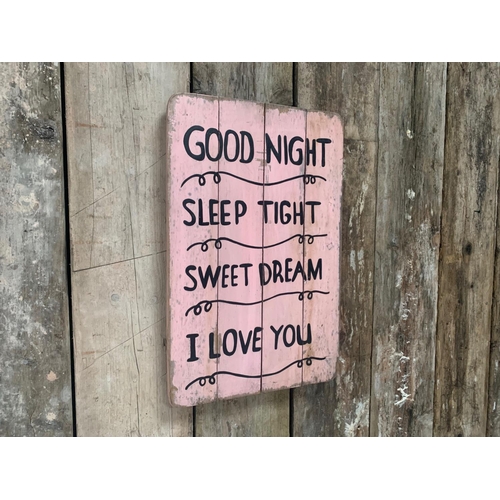 GOOD NIGHT
SLEEP TIGHT
SWEET DREAM
I LOVE YOU